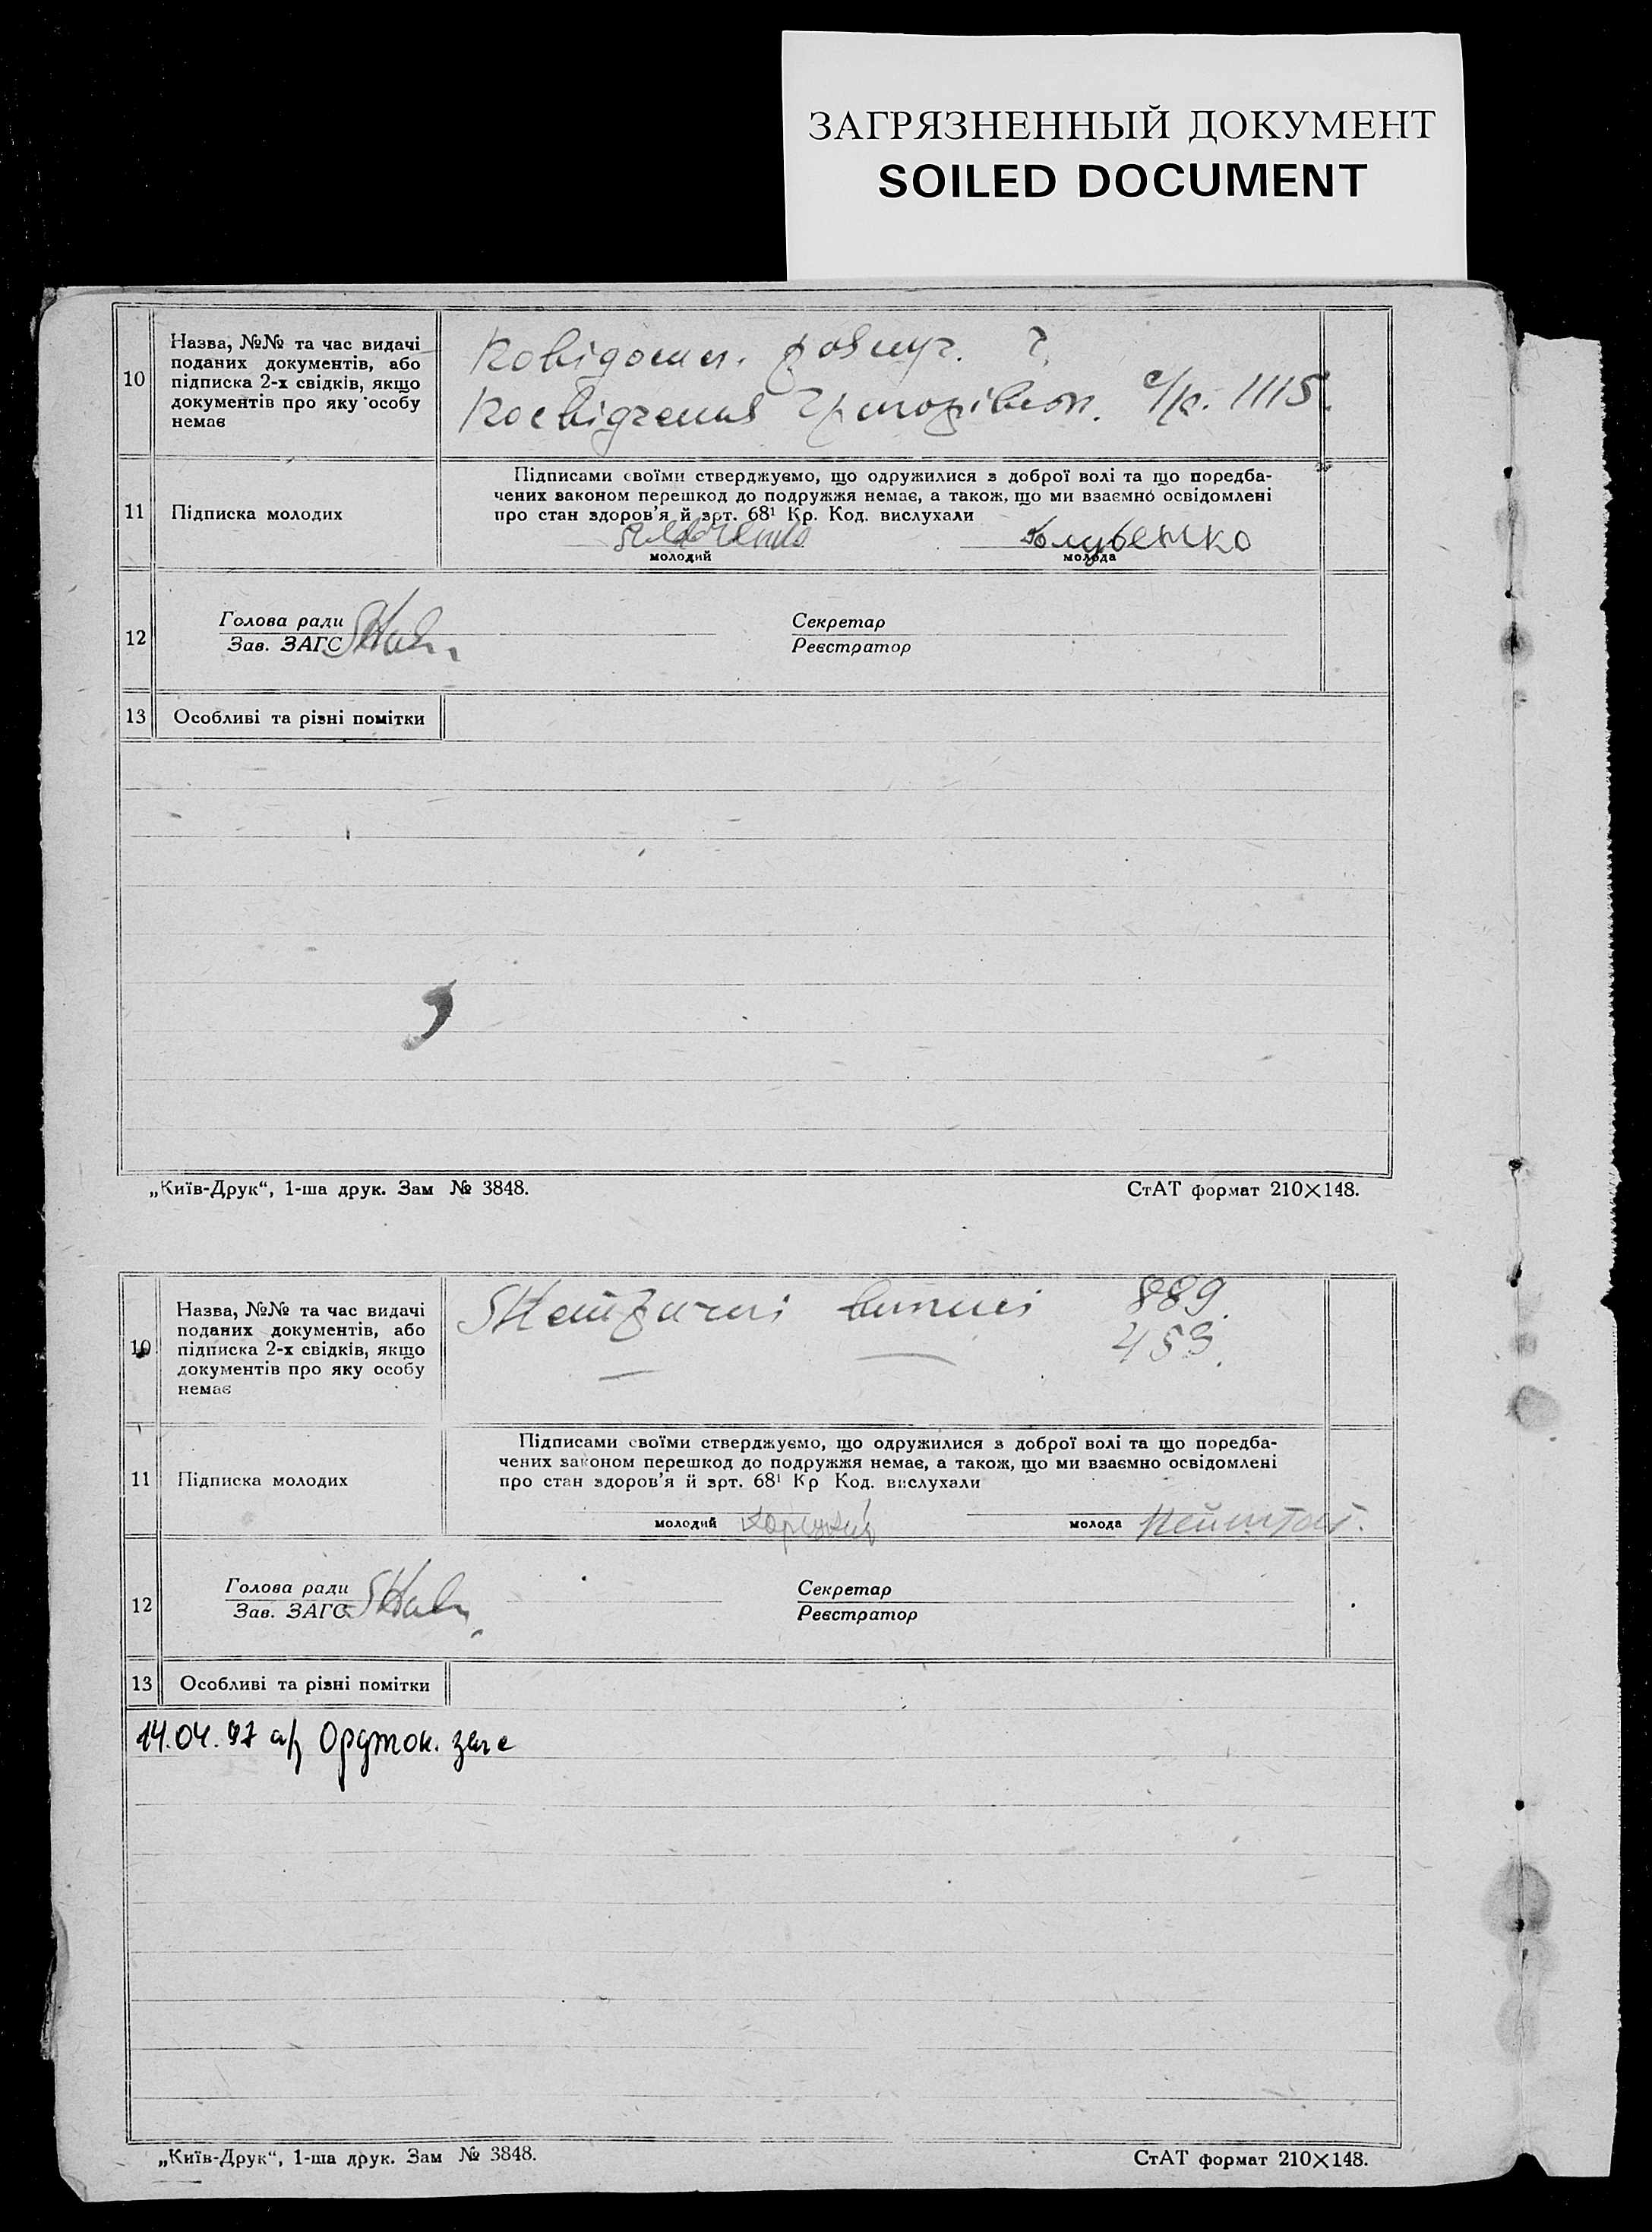 ЗАГРЯЗНЕННЫЙ ДОКУМЕНТ
SOILED DOCUMENT
10
Назва, №№ та час видачі
поданих документів, або
підписка 2-х свідків, якщо
документів про яку особу
немає
с/р. 1115.
11
Підписка молодих
Підписами своїми стверджуємо, що одружилися з доброї волі та що поредба-
чених законом перешкод до подружжя немає, а також, що ми взаємно освідомлені
про стан здоров'я й арт. 68¹ Кр. Код. вислухали
молодий
молода
12
Голова ради
Зав. ЗАГС
Секретар
Реєстратор
13
Особливі та різні помітки
„Київ-Друк“, 1-ша друк. Зам № 3848.
СтАТ формат 210×148.
10
Назва, №№ та час видачі
поданих документів, або
підписка 2-х свідків, якщо
документів про яку особу
немає
889
453.
11
Підписка молодих
Підписами своїми стверджуємо, що одружилися з доброї волі та що поредба-
чених законом перешкод до подружжя немає, а також, що ми взаємно освідомлені
про стан здоров'я й арт. 68¹ Кр Код. вислухали
молодий
молода
12
Голова ради
Зав. ЗАГС
Секретар
Реєстратор
13
Особливі та різні помітки
14.04.97
„Київ-Друк“, 1-ша друк. Зам № 3848.
СтАТ формат 210×148.